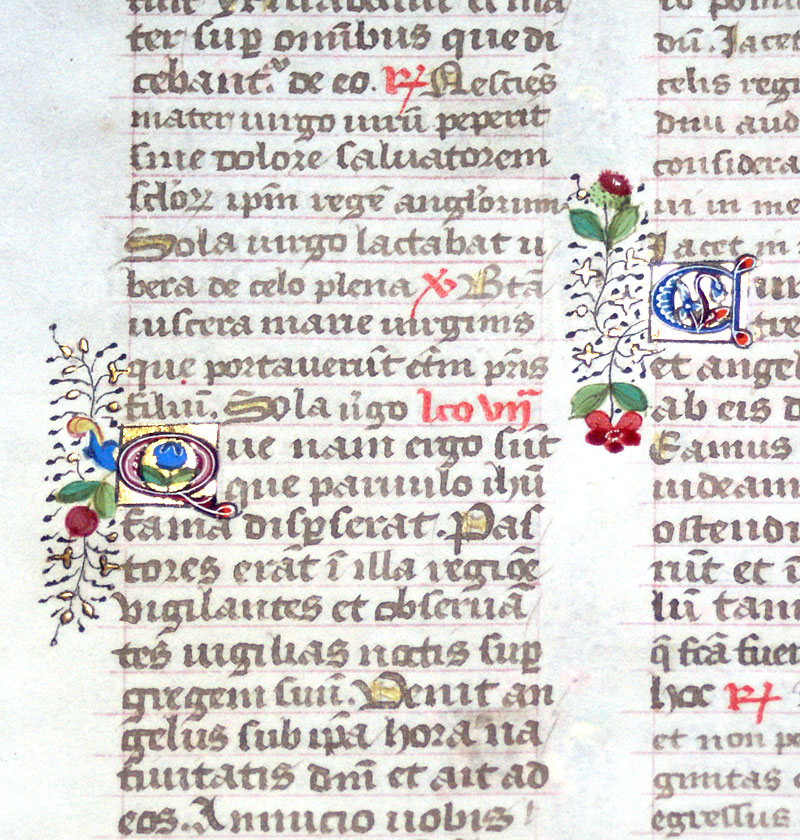 ter sup omībus que di
cebant᷑. de eo. R̷ Nesciēs
mater uirgo uirū peperit
sine dolore saluatorem
sclo̅ꝝ ipm̄ regē anglorum
Sola uirgo lactabat u
bera de celo plena V̷ Btā
uiscera marie uirginis
que portauerūt et̄ni pr̄is
filiū. Sola ūgo lc̄o vij
Que nam ergo sūt
que paruulo ihū
fama disp̱serat. Pas
tores erāt ī illa regiōe
vigilantes et obseruā
tes uigilias noctis sup
gregem suū. Venit an
gelus sub ip̄a hora na
tiuitatis dn̄i et ait ad
eos. Annucio uobis
dū. Jacet
celis regi
dn̄u aud
considera
ui in me
Jacet in
et angel
ab eis d
Eamus
uideam
ostendi
rūt et
lū tam
q̄ fcā fuer
hoc R̷
et non pe
ginitas
egressus